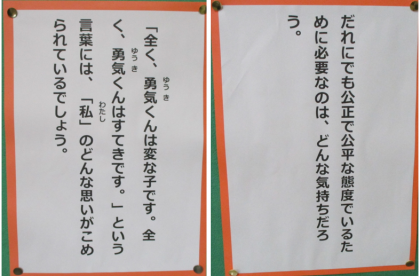 ゆうき
「全く、勇気くんは変な子です。全
ゆうき
く、勇気くんはすてきです。」という
わたし
言葉には、「私」のどんな思いがこめ
られているでしょう。
だれにでも公正で公平な態度でいるた
めに必要なのは、どんな気持ちだろ
う。